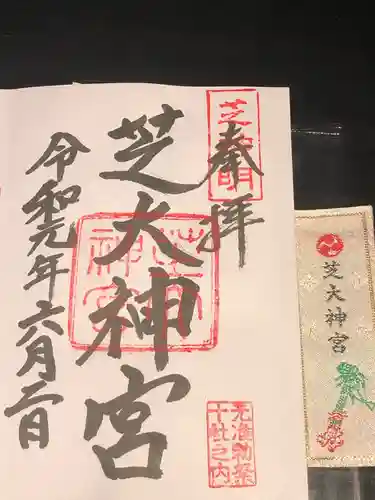 奉拝
芝大神宮
令和元年六月二日
芝大神宮
元准勅祭
十社之内
芝大神宮